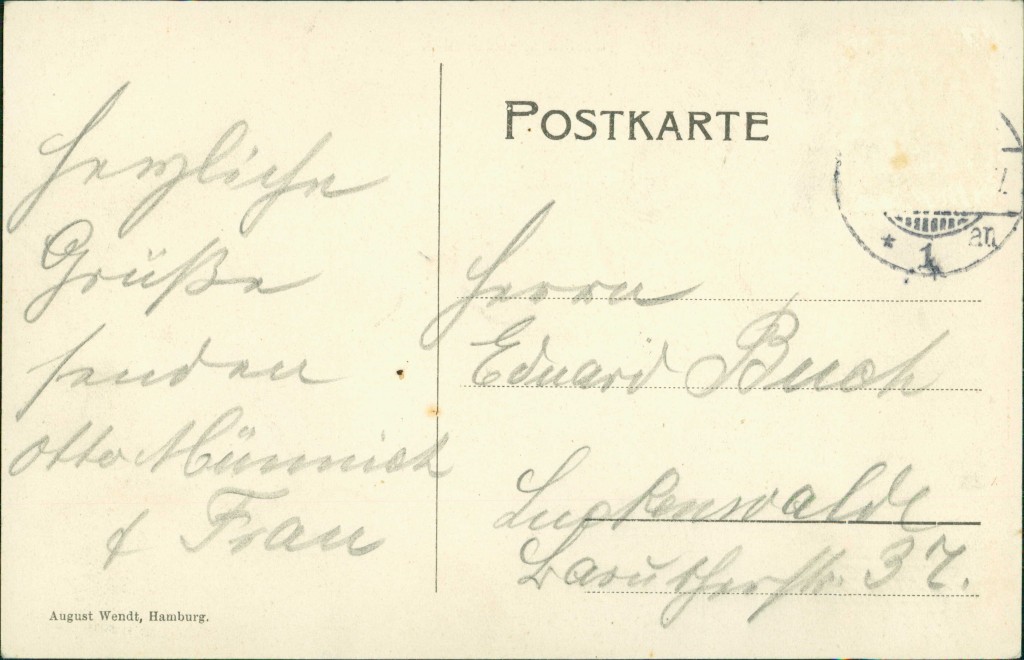 Herzliche
Grüße
senden
Otto Münnich
& Frau
August Wendt, Hamburg.
POSTKARTE
Herrn
Eduard Buch
Luckenwalde
Barutherstr. 37.
* 1 * an